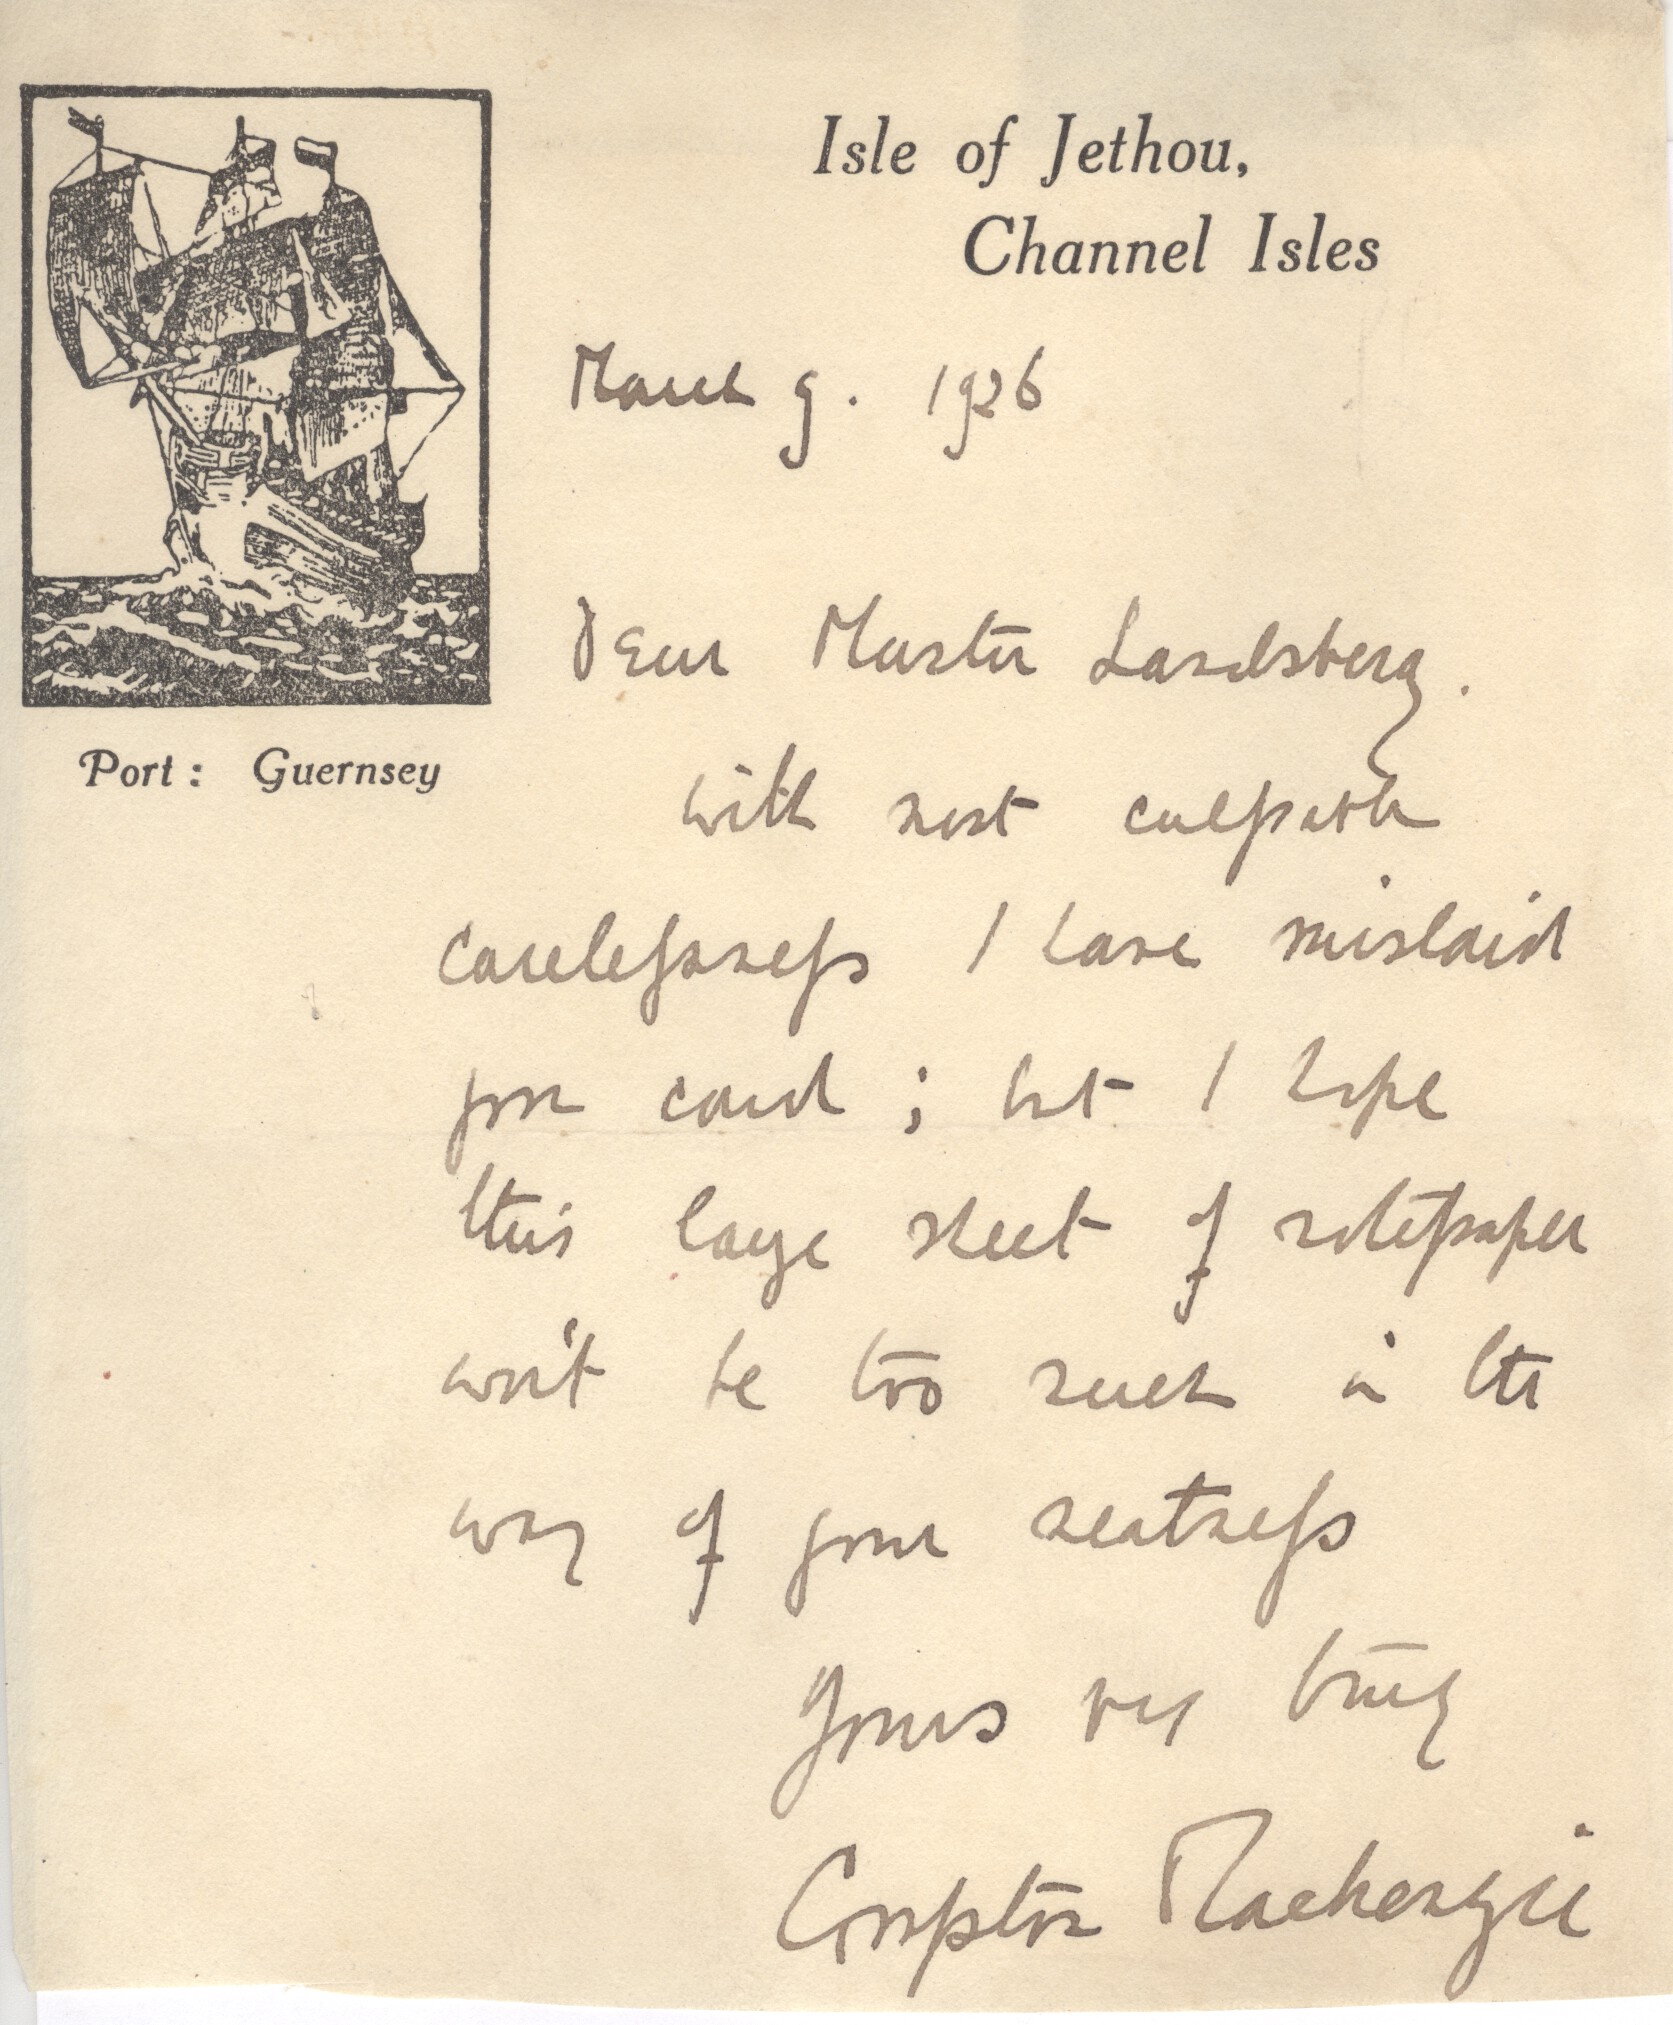 Isle of Jethou,
Channel Isles
Port: Guernsey
March 9. 1926
Dear Master Landsberg.
with most culpable
carelessness I have mislaid
your card; but I hope
this large sheet of notepaper
won't be too much in the
way of your neatness
Yours very truly
Compton Mackenzie